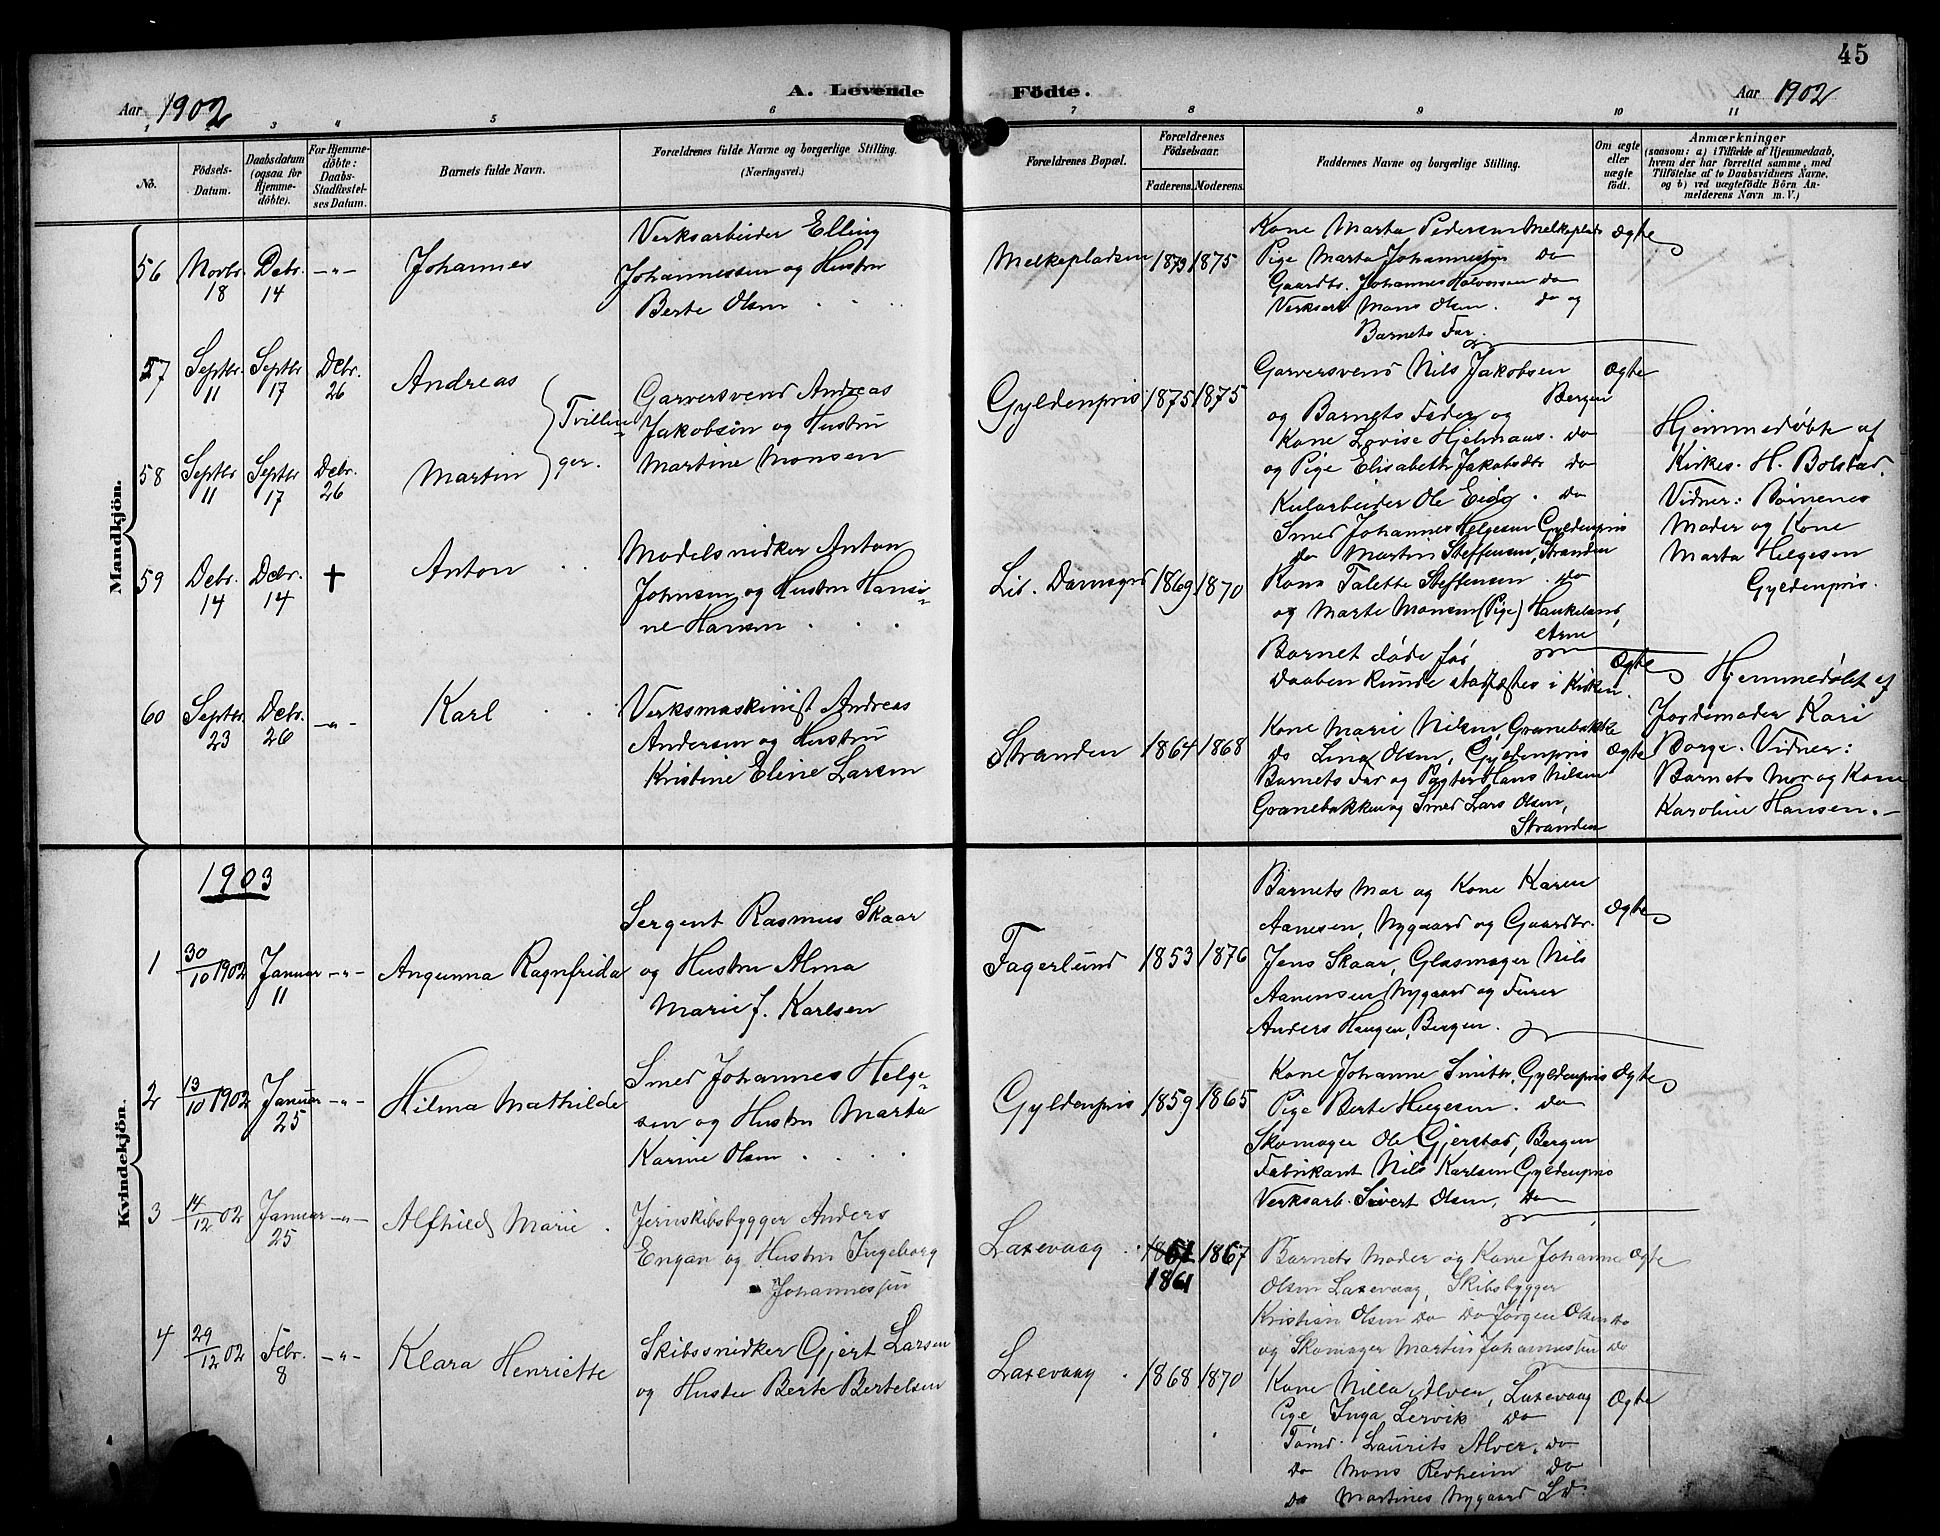 45
Aar 1902
A. Levende
Födte.
Aar 1902
1 2 3 4 5 6 7 8 9 10 11
No.
Födsels-Datum.
Daabsdatum (ogsaa for Hjemme-döbte).
For Hjemme-döbte: Daabs-Stadfæstel-ses Datum.
Barnets fulde Navn.
Forældrenes fulde Navne og borgerlige Stilling.
(Næringsvei.)
Forældrenes Bopæl.
Forældrenes Födselsaar.
Faderens. Moderens.
Faddernes Navne og borgerlige Stilling.
Om ægte eller uægte födt.
Anmærkninger
(saasom: a) i Tilfælde af Hjemmedaab, hvem der har forrettet samme, med Tilföielse af to Daabsvidners Navne, og b) ved uægtefödte Börn Anmelderens Navn m. V.)
Mandkjön.
56 Novbr. 18 Debr. 14 -"- Johannes
Verksarbeider Elling
Johannessen og Hustru
Berte Olsen
Melkepladsen 1879 1875
Kone Marta Pedersen Melkeplads
Pige Marta Johannessen do
Gaardbr. Johannes Halvorsen do
Verksarb Mons Olsen. do og
Barnets Far.
Ægte
57 Septbr. 11 Septbr 17 Debr. 26 Andreas
58 Septbr 11 Septbr 17 Debr. 26 Martin
Tvillinger.
Garversvend Andreas
Jakobsen og Hustru
Martine Monsen
Gyldenpris 1875 1875
Garversvend Nils Jakobsen
Bergen
og Barnets Fader og
Kone Lovise Hjelmaas. do
og Pige Elisabeth Jakobsdtr do
Kularbeider Ole Eide. do
Smed Johannes Helgesen Gyldenpris
do Martin Steffensen, Stranden
Kone Talette Steffensen. do
og Marte Monsen (Pige) Haukeland,
Arne
Ægte
Hjemmedøbte af
Kirkes. H. Bolstad.
Vidner: Børnenes
Moder og Kone
Marta Helgesen
Gyldenpris.
59 Debr. 14 Debr. 14 + Anton
Modelsnidker Anton
Johnsen og Hustru Hansi-
ne Hansen
Lil. Damsgrd 1869 1870
Barnet døde før
Daaben kunde stadfæstes i Kirken.
Ægte
60 Septbr. 23 Debr. 26 -"- Karl
Verksmaskinist Andreas
Andersen og Hustru
Kristine Eline Larsen
Stranden 1864 1868
Kone Marie Nilsen, Granebakke
do Lina Olsen, Gyldenpris
Barnets Far og Pagter Hans Nilsen
Granebakken og Smed Lars Olsen,
Stranden
Ægte
Hjemmedøbt af
Jordemoder Kari
Borge. Vidner:
Barnets Mor og Kone
Karoline Hansen.-
1903
Kvindekjön.
1 30/10 1902 Januar 11 -"- Angunna Ragnfrida
Sergent Rasmus Skaar
og Hustru Alma
Marie f. Karlsen
Fagerlund 1853 1876
Barnets Mor og Kone Karen
Aanesen, Nygaard og Gaardbr.
Jens Skaar, Glasmager Nils
Aanensen Nygaard og Furer
Anders Haugen, Bergen.
Ægte
2 13/10 1902 Januar 25 -"- Hilma Mathilde
Smed Johannes Helge-
sen og Hustru Marta
Karine Olsen
Gyldenpris 1859 1865
Kone Johanne Smith, Gyldenpris
Pige Berte Helgesen. do
Skomager Ole Gjerstad, Bergen
Fabrikant Nils Karlsen Gyldenpris
Verksarb. Sivert Olsen, do
Ægte
3 14/12 02 Januar 25 -"- Alfhild Marie
Jernskibsbygger Anders
Engan og Hustru Ingeborg
Johannessen
Laxevaag 1861 1867
Barnets Moder og Kone Johanne
Olsen Laxevaag, Skibsbygger
Kristian Olsen do do Jørgen Olsen do
og Skomager Martin Johannessen do
Ægte
4 29/12 02 Febr. 8 -"- Klara Henriette
Skibssnidker Gjert Larsen
og Hustru Berte Bertelsen
Laxevaag 1868 1870
Kone Nilla Alver, Laxevaag
Pige Inga Lervik do
Tømd. Laurits Alver. do
do Mons Revheim do
do Martines Nygaard Ld.
Ægte